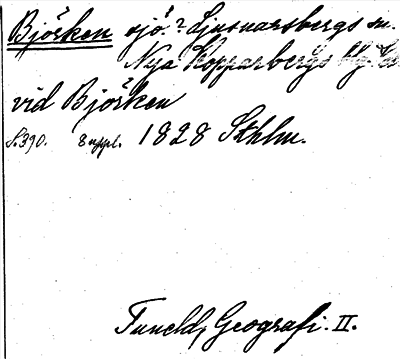 Björken sjö.? Ljusnarsbergs sn.
Nya Kopparbergs
vid Björken
S.390. 8 uppl. 1828 Sthlm.
Tuneld, Geografi. II.